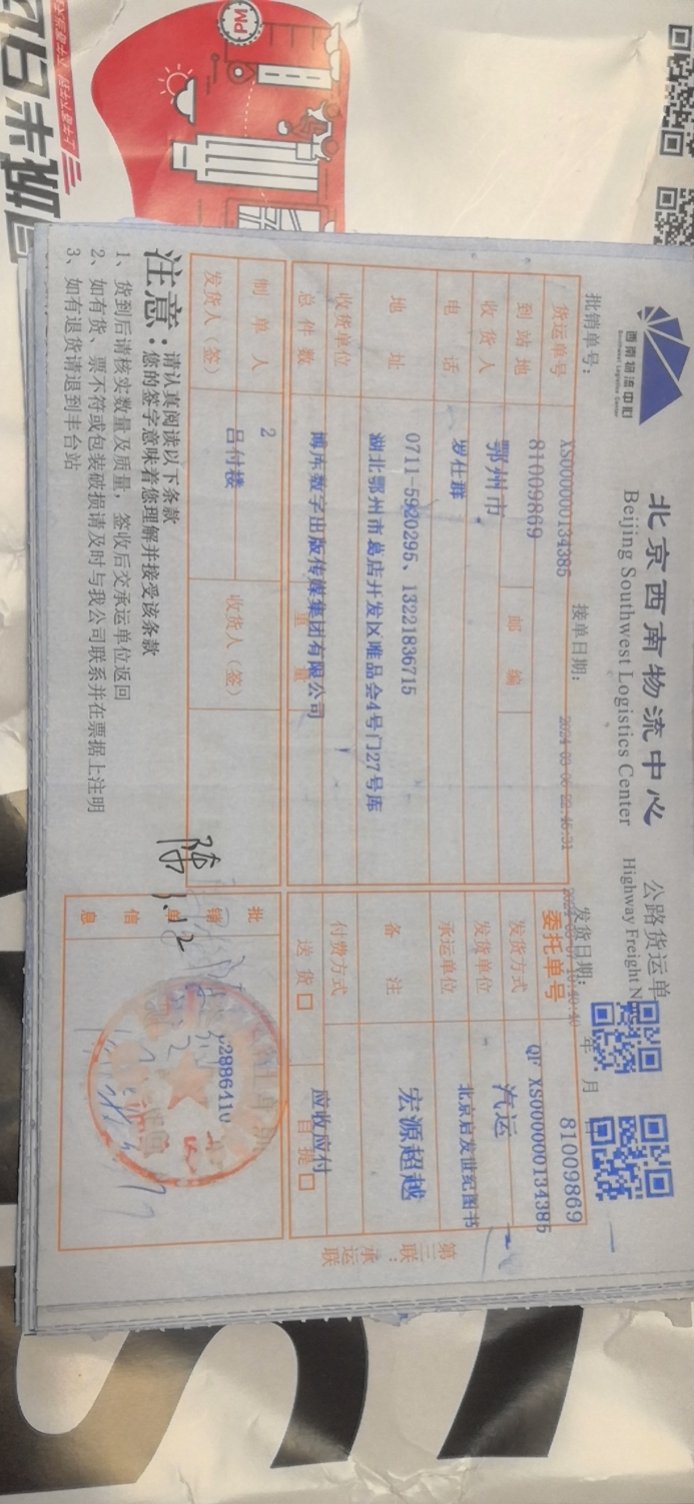 西南物流中心
Southwest Logistics Center
北京西南物流中心
Beijing Southwest Logistics Center
公路货运单
Highway Freight N
批销单号：
接单日期：
发货日期： 年 月 日
货运单号 XS000000134385
81009869
委托单号 81009869
QF XS000000134385
到站地 鄂州市 邮编
发货方式 汽运
收货人 罗仕群
发货单位 北京启发世纪图书
电话 0711-5920295、13221836715
承运单位 宏源超越
地址 湖北鄂州市葛店开发区唯品会4号门27号库
备注
收货单位 博库数字出版传媒集团有限公司
付费方式 应收应付
总件数 2 重量
送货□ 自提□
制单人 吕付楼
发货人（签） 收货人（签）
批销单信息
p2886410
陈
3.12
第三联：承运联
注意：
请认真阅读以下条款
您的签字意味着您理解并接受该条款
1、货到后请核实数量及质量，签收后交承运单位返回
2、如有货、票不符或包装破损请及时与我公司联系并在票据上注明
3、如有退货请退到丰台站
PM